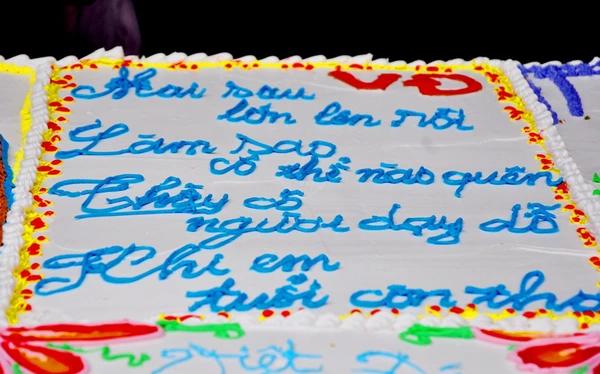 VD
Mai sau
lớn lên rồi
Làm sao
có thể nào quên
Thầy cô
người dạy dỗ
Khi em
tuổi còn thơ
Việt